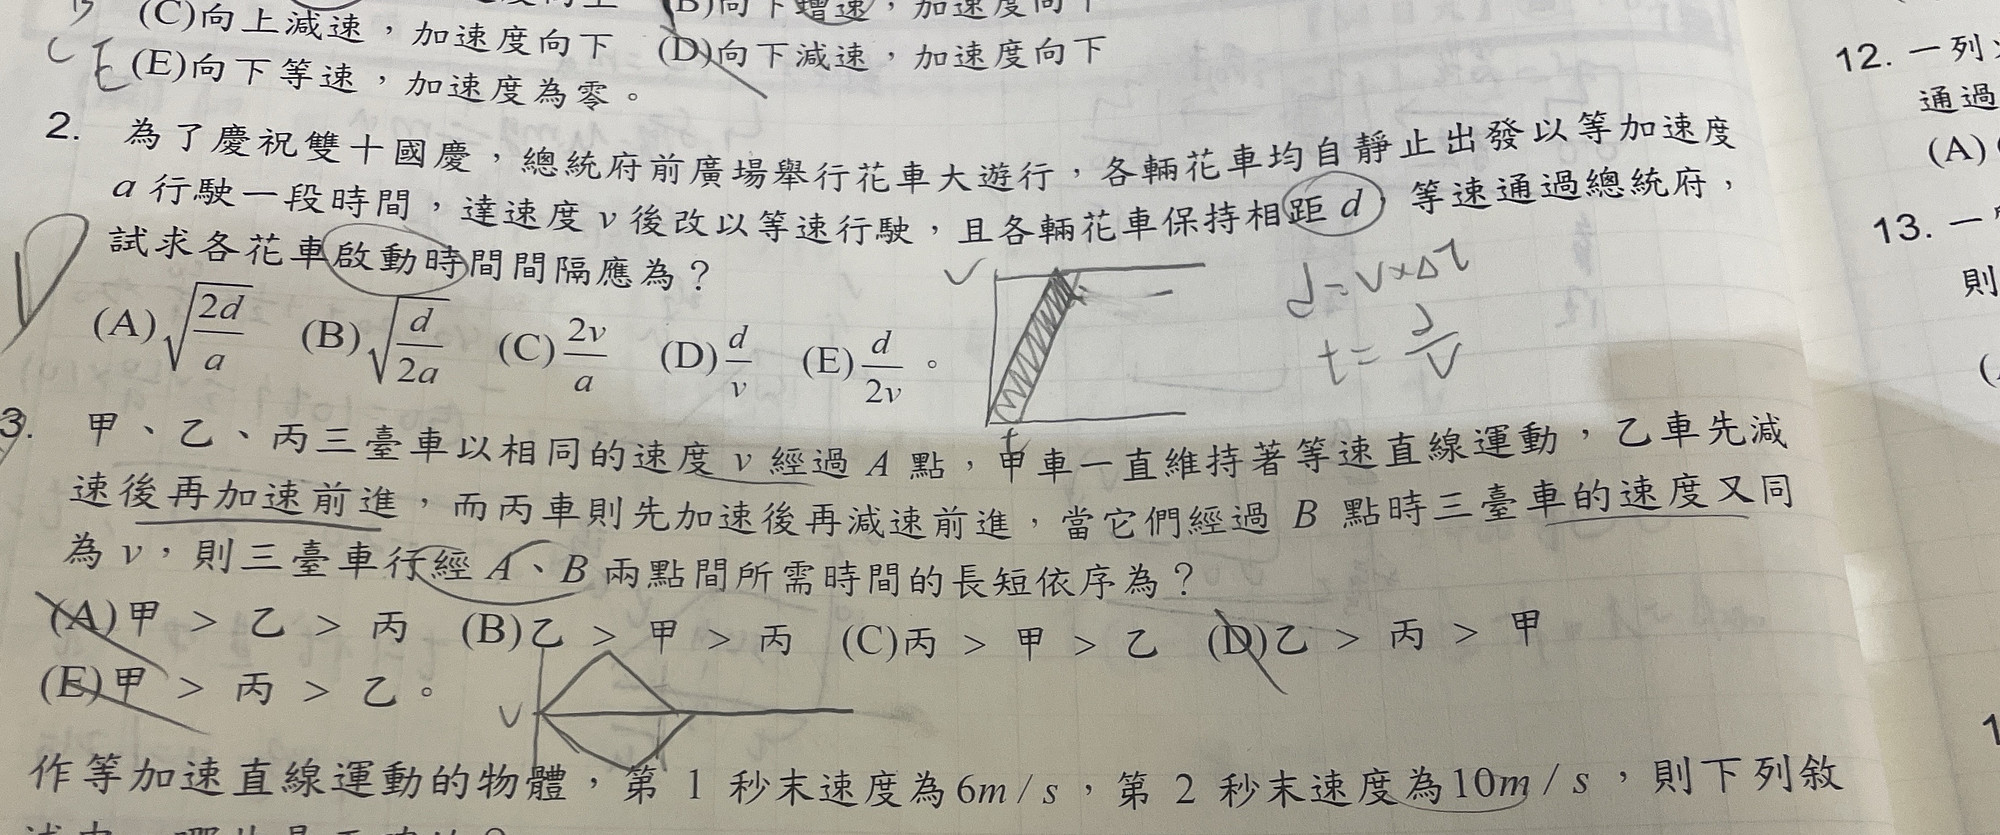 (C)向上減速，加速度向下 (D)向下減速，加速度向下
C E (E)向下等速，加速度為零。
2. 為了慶祝雙十國慶，總統府前廣場舉行花車大遊行，各輛花車均自靜止出發以等加速度
a 行駛一段時間，達速度 v 後改以等速行駛，且各輛花車保持相距 d 等速通過總統府，
試求各花車啟動時間間隔應為？
D
(A)√(2d/a) (B)√(d/2a) (C) 2v/a (D) d/v (E) d/2v 。
v
d=v×Δt
t= d/v
t
3. 甲、乙、丙三臺車以相同的速度 v 經過 A 點，甲車一直維持著等速直線運動，乙車先減
速後再加速前進，而丙車則先加速後再減速前進，當它們經過 B 點時三臺車的速度又同
為 v，則三臺車行經 A、B 兩點間所需時間的長短依序為？
(A)甲 > 乙 > 丙 (B)乙 > 甲 > 丙 (C)丙 > 甲 > 乙 (D)乙 > 丙 > 甲
(E)甲 > 丙 > 乙。
v
作等加速直線運動的物體，第 1 秒末速度為6m / s，第 2 秒末速度為10m / s，則下列敘
12. 一列
通過
(A)
13. 一
則
(
1